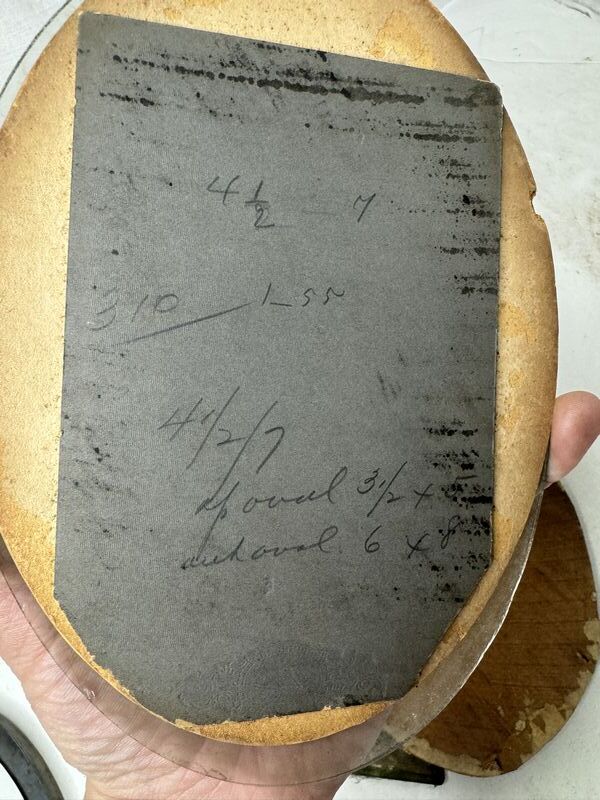 4 1/2 — 7
310 1-55
4 1/2/7
oval 3 1/2 x 5
oval 6 x 8